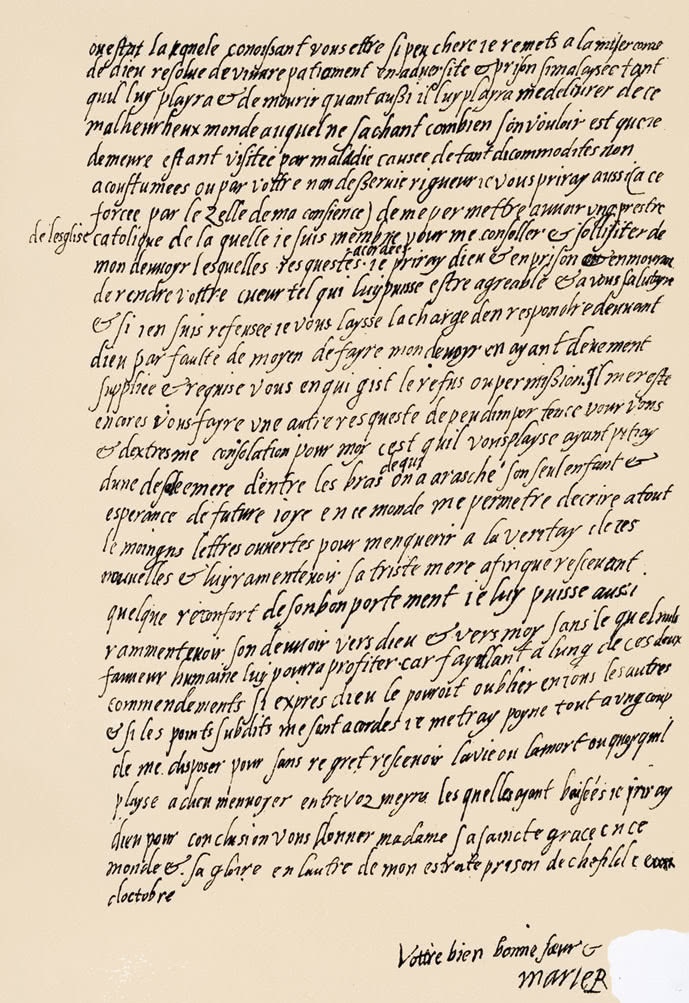 ou estat la quele conoissant vous estre si peu chere ie remets a la misericorde
de dieu resolue de vivre patiament en adversite & prison si malaysee tant
quil luy playra & de mourir quant aussi il luy playra me delivrer de ce
malheurheux monde auquel ne sachant combien son vouloir est que ie
demeure estant visitee par maladie causee de tant dicommodites non
acoustumees ou par vottre non desservie rigueur ie vous priray aussi (a ce
forcee par le zelle de ma consience) de me permettre avvoir ung prestre
de lesglise catolique de la quelle ie suis membre pour me consoller & solliciter de
mon devvoyr lesquelles resquestes acordees ie priray dieu & en prison & en mourant
de rendre vottre cueur tel qui luy puisse estre agreable & a vous salutayre
& si ien suis refeusee ie vous laysse la charge den respondre devvant
dieu par faulte de moyen de fayre mon devvoyr en ayant devement
suppliee & requise vous en qui gist le refus ou permission. Il me reste
encores vous fayre une autre resqueste de peu dimportence pour vous
& dextresme consolation pour moy cest quil vous playse ayant pitay
dune desolee mere dentre les bras de qui on a arasche son seul enfant &
esperance de future ioye en ce monde me permetre decrire a tout
le moingns lettres ouvertes pour menquerir a la veritay de ses
nouvelles & luy ramentevoir sa triste mere afin que rescevent
quelque reconfort de son bon portement ie luy puisse aussi
rammentevoir son devvoir vers dieu & vers moy sans le quel nule
faveur humaine luy pourra profiter car fayllant a lung de ces deux
commendements si expres dieu le pouroit oublier en tous les autres
& si les points subdits me sont acordes ie metray poyne tout a vng coup
de me disposer pour sans regret rescevoir la vie ou la mort ou quoy quil
playse a dieu menvoyer entre voz meyns les quelles ayant baisées ie priray
dieu pour conclusion vous donner madame sa saincte grace en ce
monde & sa gloire en lautre de mon estroite prison de chefild ce
doctobre
Vottre bien bonne sœur &
MARIE R